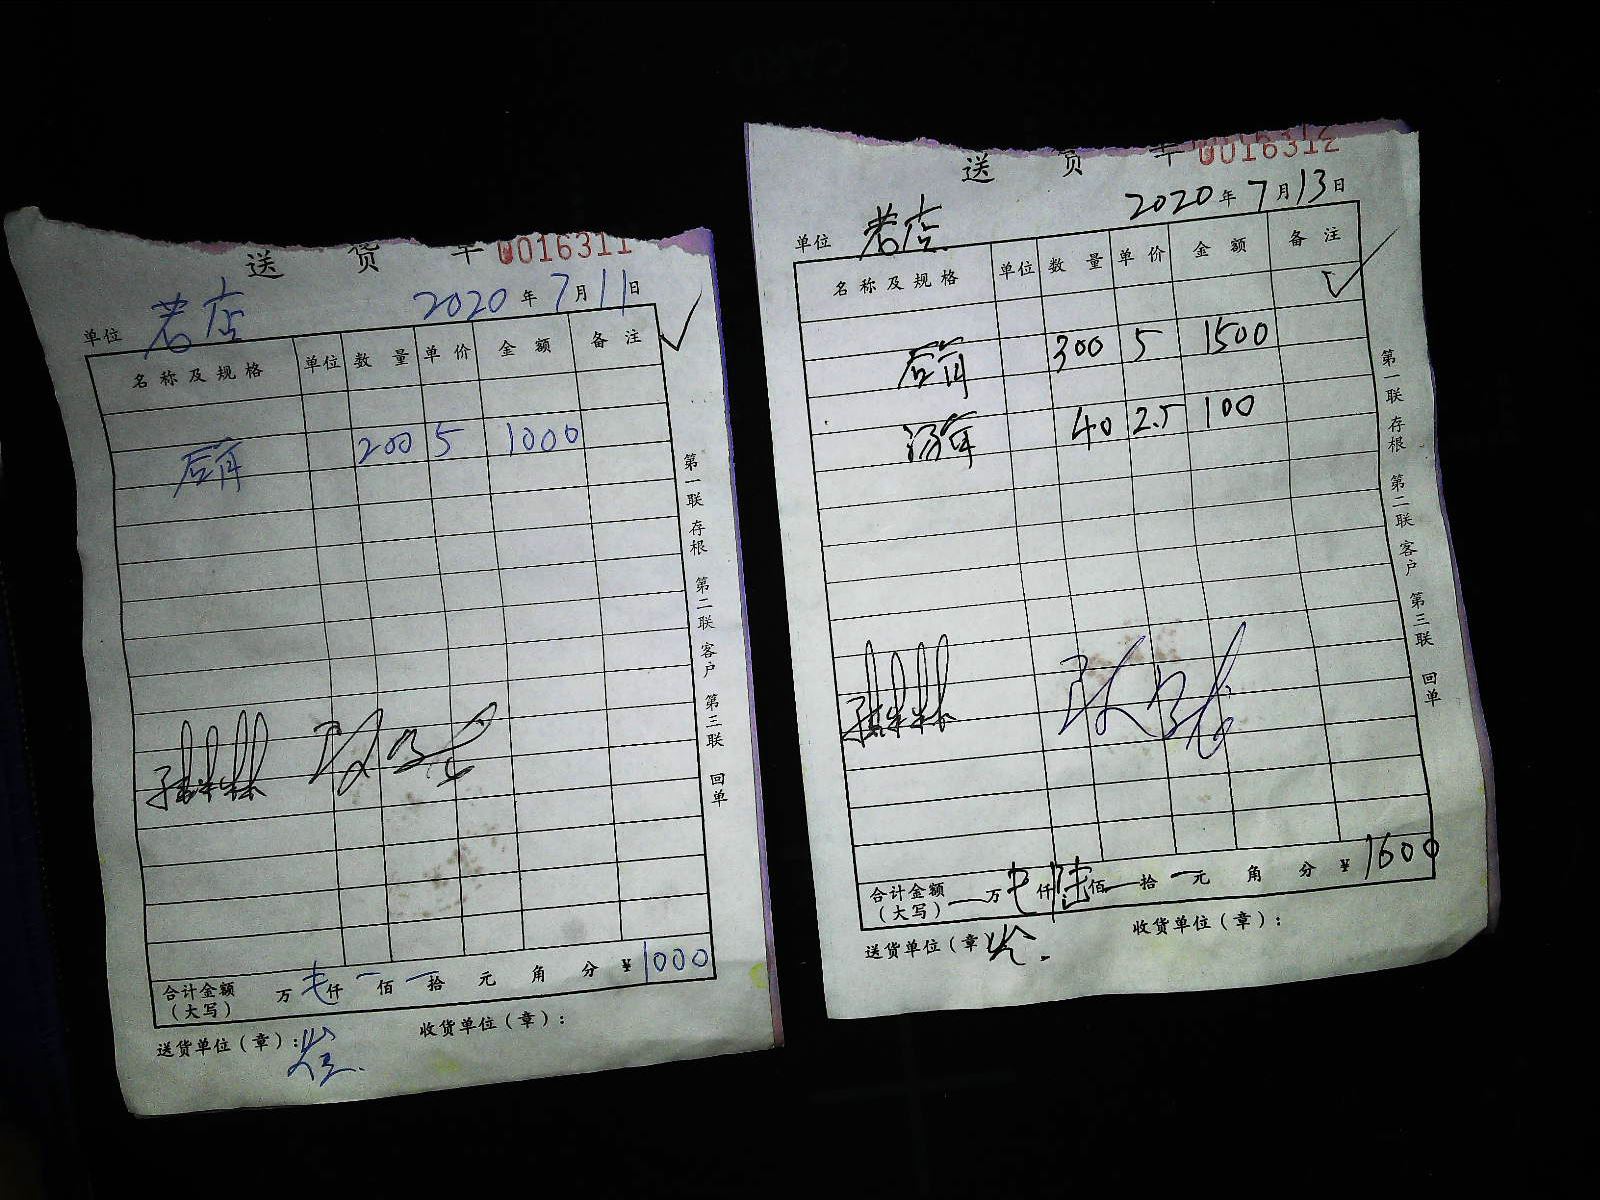 送 货 单 0016311
单位 老店 2020年7月11日
名称及规格 单位 数量 单价 金额 备注
后肖 200 5 1000
第一联 存根 第二联 客户 第三联 回单
合计金额(大写) 万 仟 佰 拾 元 角 分 ¥1000
送货单位(章): 收货单位(章):
送 货 单 0016312
单位 老店 2020年7月13日
名称及规格 单位 数量 单价 金额 备注
300 5 1500
40 2.5 100
第一联 存根 第二联 客户 第三联 回单
合计金额(大写) 万 仟 陆佰 拾 元 角 分 ¥1600
送货单位(章) 收货单位(章):